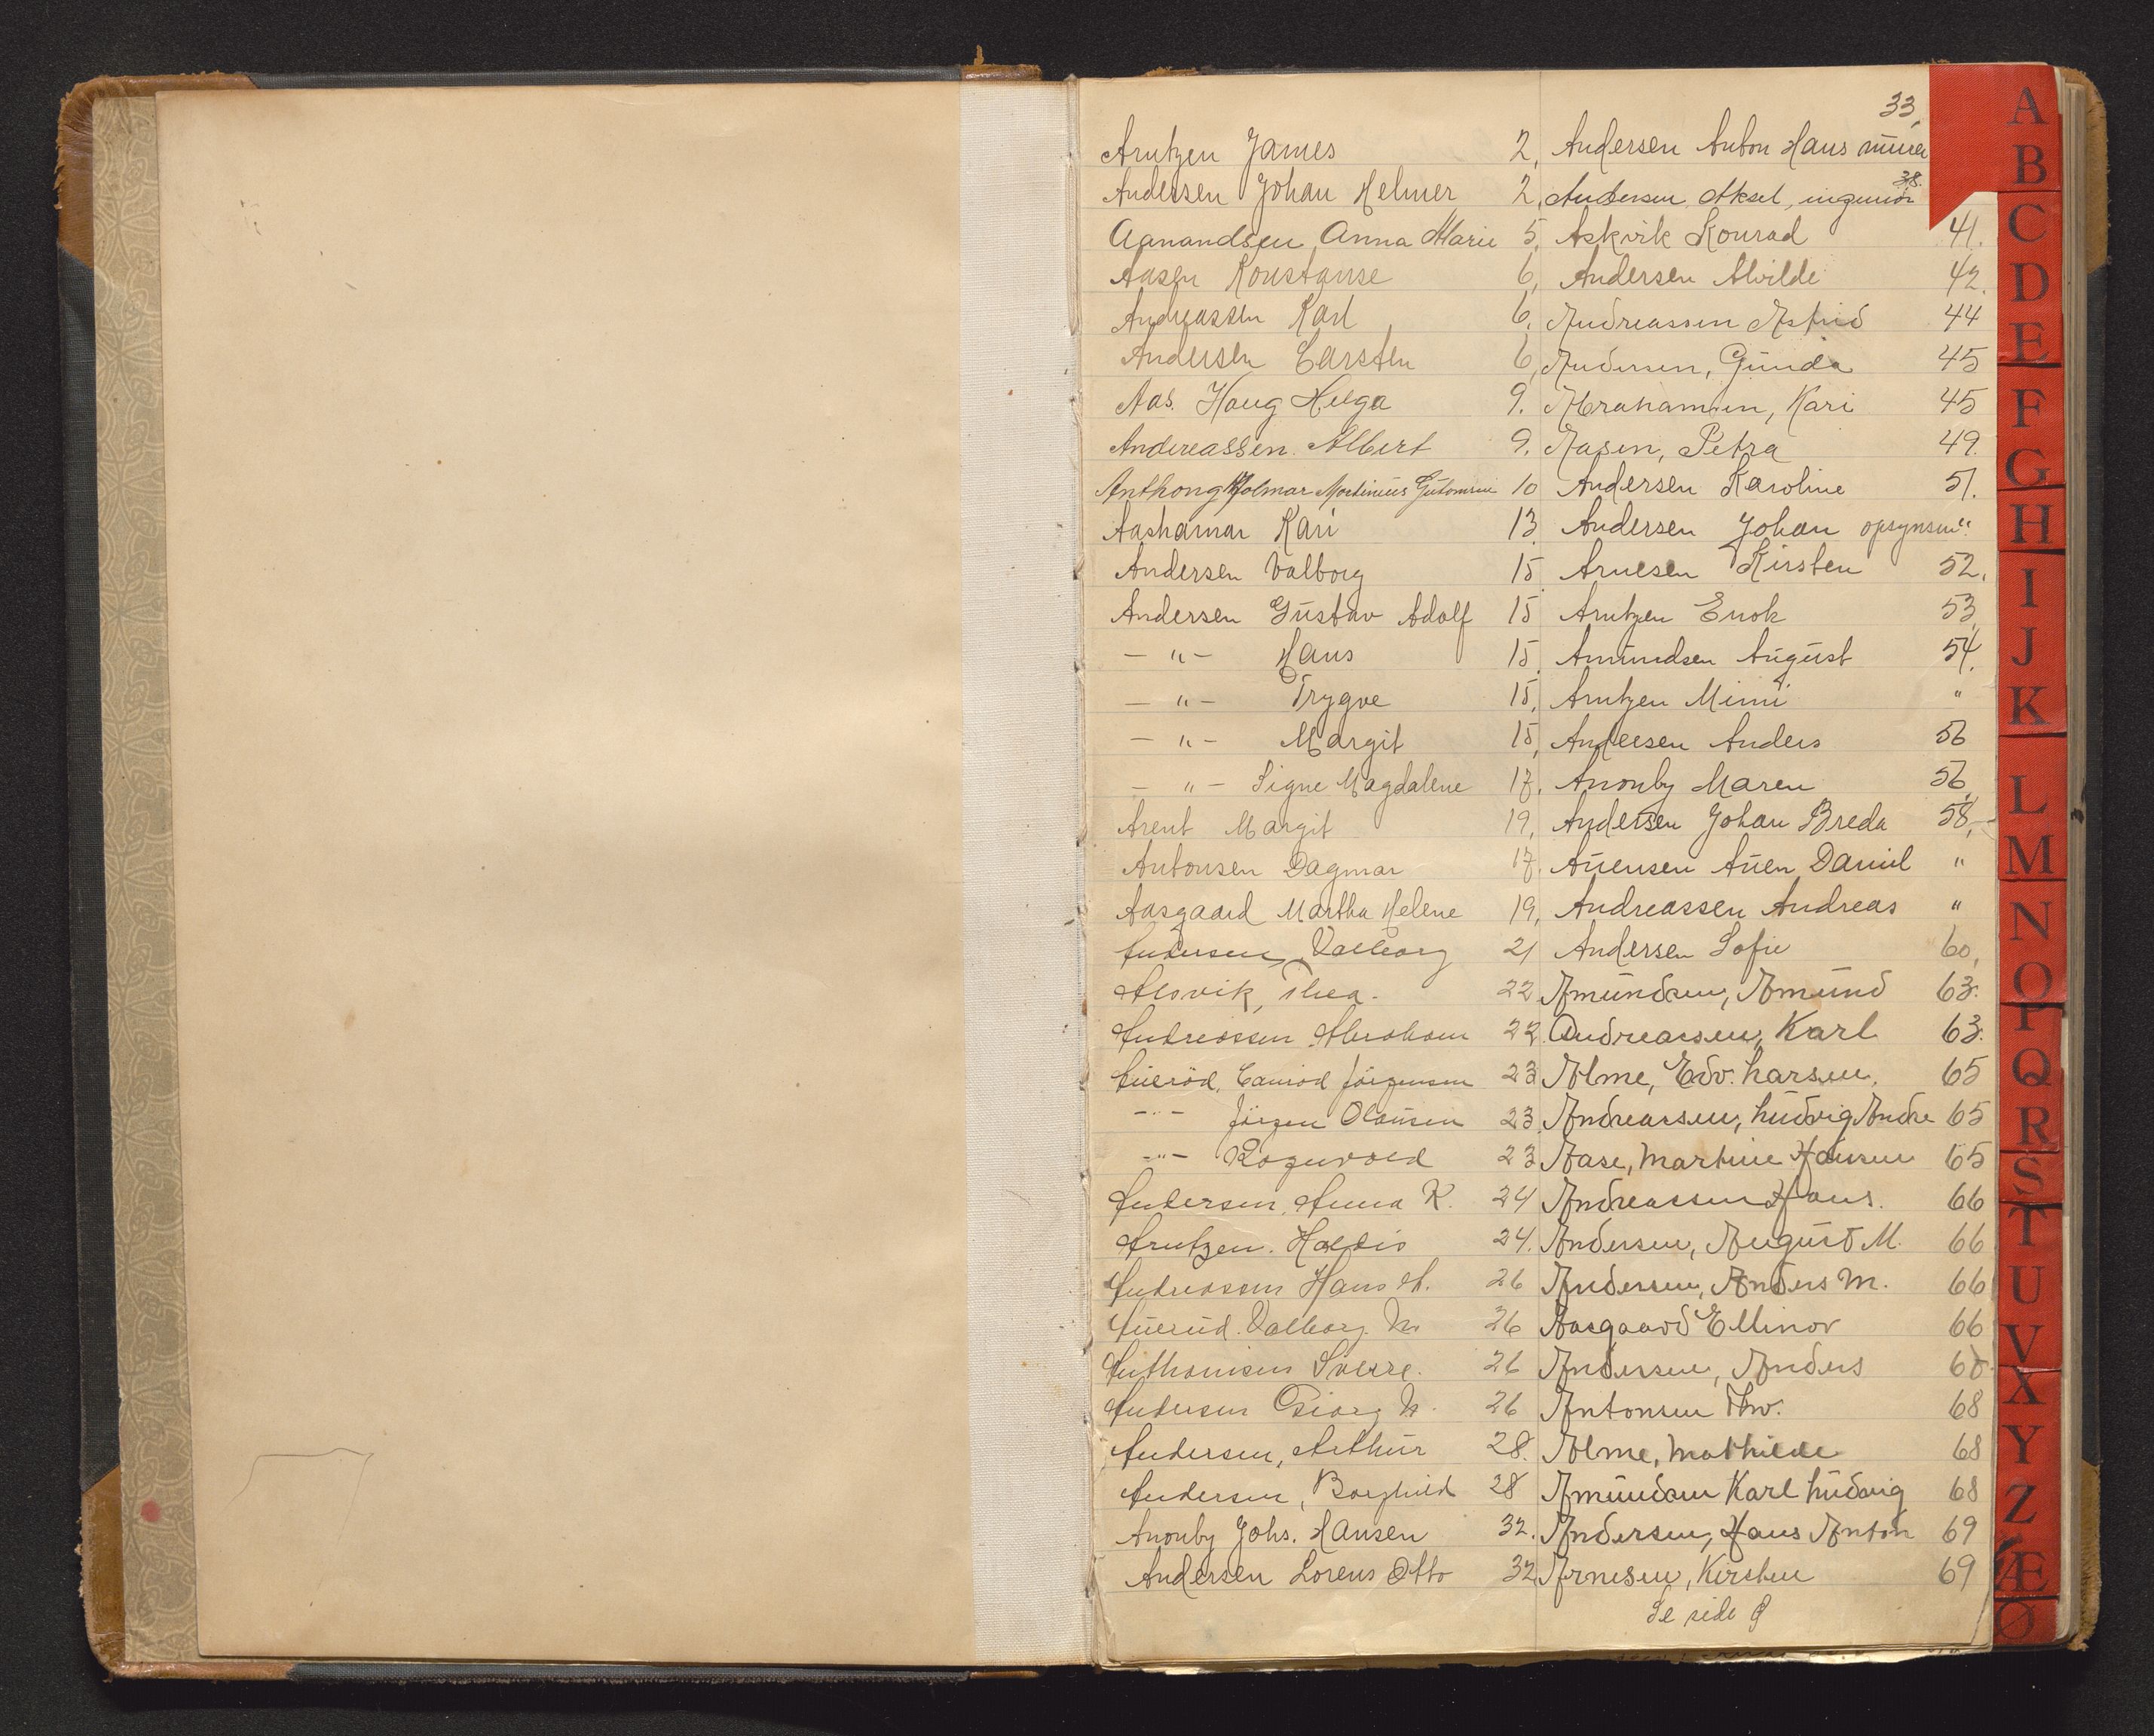 Arntzen James 2,
Andersen Johan Helmer 2,
Aanandsen Anna Marie 5,
Aasen Konstanse 6,
Andreassen Karl 6,
Andersen Carsten 6,
Aas. Haug Helga 9.
Andreassen. Albert 9.
Anthong Hjolmar Martinius 10
Aashamar Kari 13
Andersen Valborg 15
Andersen Gustav Adolf 15
— " — Hans 15
— " — Trygve 15,
— " — Margit 15,
— " — Signe Magdalene 17,
Arent Margit 19,
Antonsen Dagmar 17.
Aasgaard Martha Helene 19,
Andersen, Valborg 21
Alsvik, Thea. 22
Andreassen Abraham 22.
Aueröd, Jörgensen 23
— " — Jörgen Olausen 23.
— " — Rognvald 23
Andersen, Anna K. 24
Arntzen. Haldis 24.
Andreassen Hans A. 26
Auerud. Valborg. M. 26
Anthonisen Sverre. 26
Andersen Georg M. 26
Andersen, Arthur 28.
Andersen, Borghild 28
Anonby Johs. Hansen 32.
Andersen Lorens Otto 32
33,
Andersen Anton Hans murer
38.
Andersen Aksel, ingeniör
Askvik Konrad 41.
Andersen Alvilde 42.
Andreassen Astrid 44
Andersen, Gunda 45
Abrahamsen, Kari 45
Aasen, Petra 49.
Andersen Karoline 51.
Andersen Johan opsynsm "
Arnesen Kirsten 52.
Arntzen Enok 53
Amundsen August 54.
Arntzen Mimi "
Andersen Anders 56
Anonby Maren 56
Andersen Johan Breda 58,
Auensen Auen Daniel "
Andreassen Andreas "
Andersen Sofie 60,
Amundsen, Amund 63.
Andreassen, Karl 63.
Alme, Edv. Larsen. 65
Andreassen, Ludvig Andre 65
Aase, Martine Hansen 65
Andreassen Hans. 66
Andersen, August M. 66
Andersen, Anders M. 66
Aasgaard Ellinor 66
Andersen, Anders
Antonsen Thv. 68
Alme, Mathilde 68
Amundsen Karl Ludvig 68
Andersen, Hans Anton 69
Arnesen, Kirsten 69
Se side
A
B
C
D
E
F
G
H
I
J
K
L
M
N
O
P
Q
R
S
T
U
V
X
Y
Z
Æ
Ø